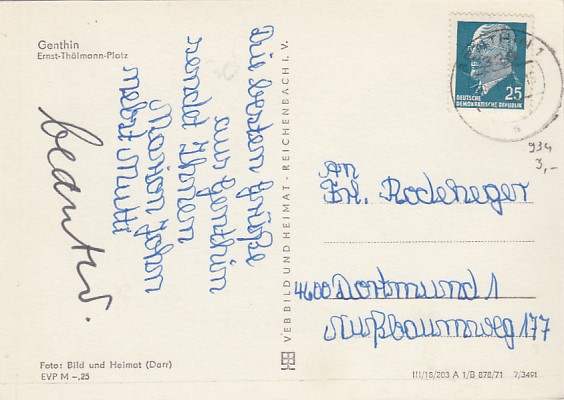 Genthin
Ernst-Thälmann-Platz
Die besten Grüße
aus Genthin
sendet Ihnen
Marion John
nebst Mutti
beantw.
VEB BILD UND HEIMAT - REICHENBACH i. V.
Foto: Bild und Heimat (Darr)
EVP M -,25
GENTHIN 1
25
DEUTSCHE
DEMOKRATISCHE REPUBLIK
934
3,-
An
Frl. Rodeheger
4600 Dortmund 1
Nußbaumweg 177
III/18/203 A 1/B 878/71 7/3491